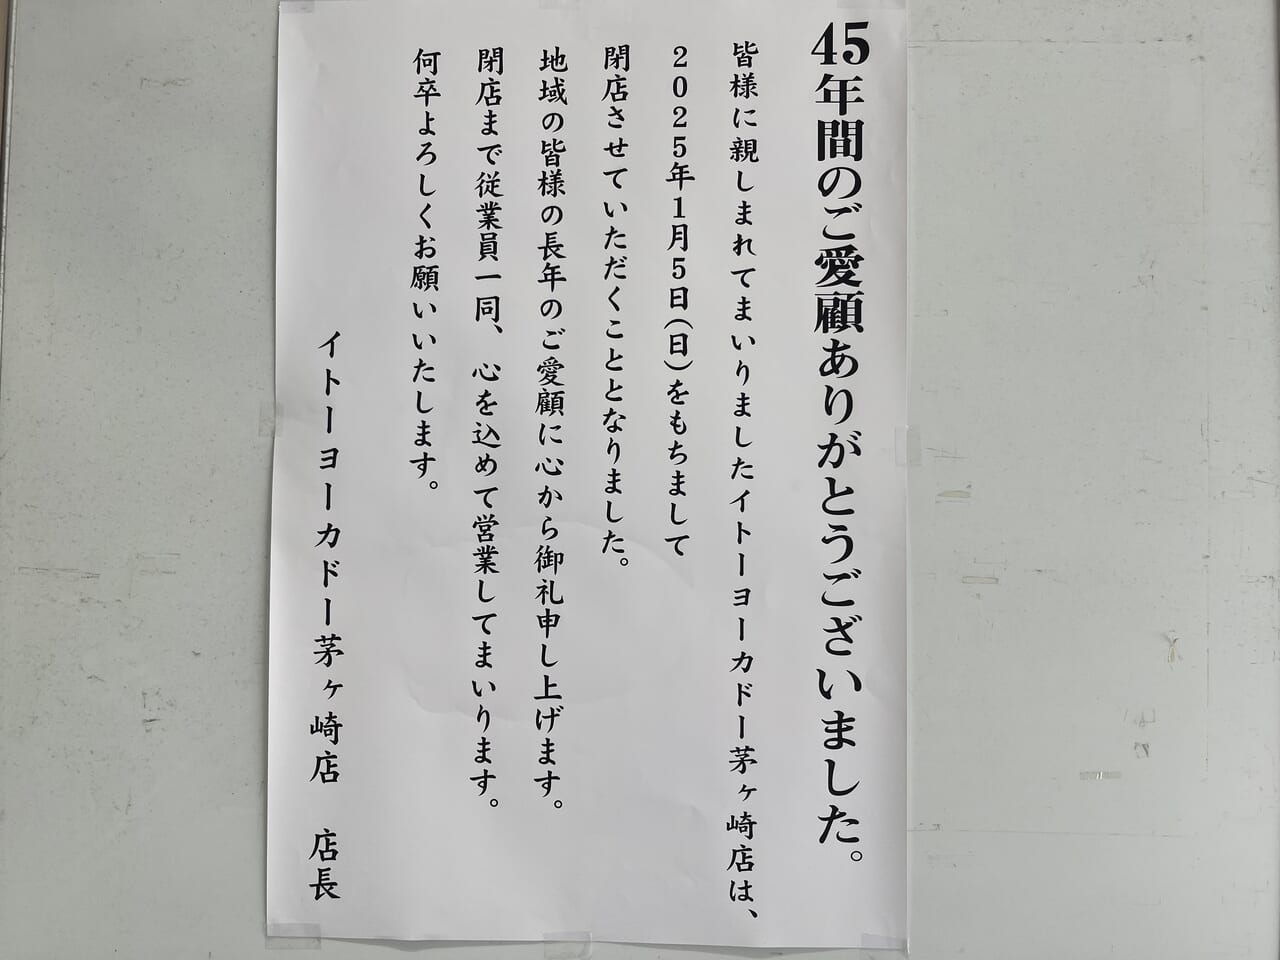 45年間のご愛顧ありがとうございました。
皆様に親しまれてまいりましたイトーヨーカドー茅ヶ崎店は、
2025年1月5日(日)をもちまして
閉店させていただくこととなりました。
地域の皆様の長年のご愛顧に心から御礼申し上げます。
閉店まで従業員一同、心を込めて営業してまいります。
何卒よろしくお願いいたします。
イトーヨーカドー茅ヶ崎店　店長